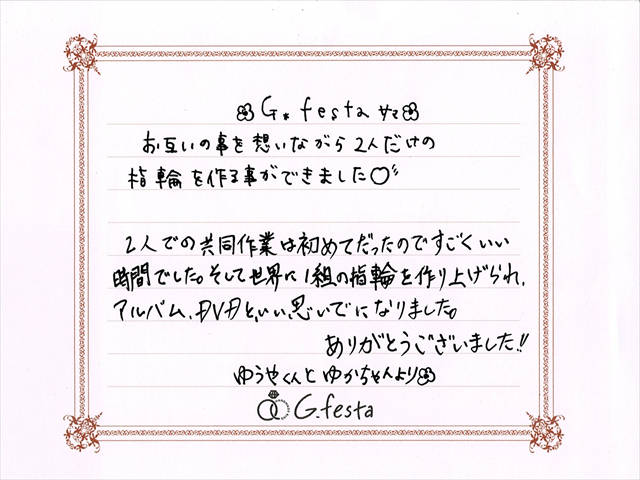 G.festa サマ
お互いの事を想いながら2人だけの
指輪を作る事ができました♡
2人での共同作業は初めてだったのですごくいい
時間でした。そして世界に1組の指輪を作り上げられ、
アルバム、DVDと、いい思いでになりました。
ありがとうございました!!
ゆうやくんとゆかちゃんより
G.festa